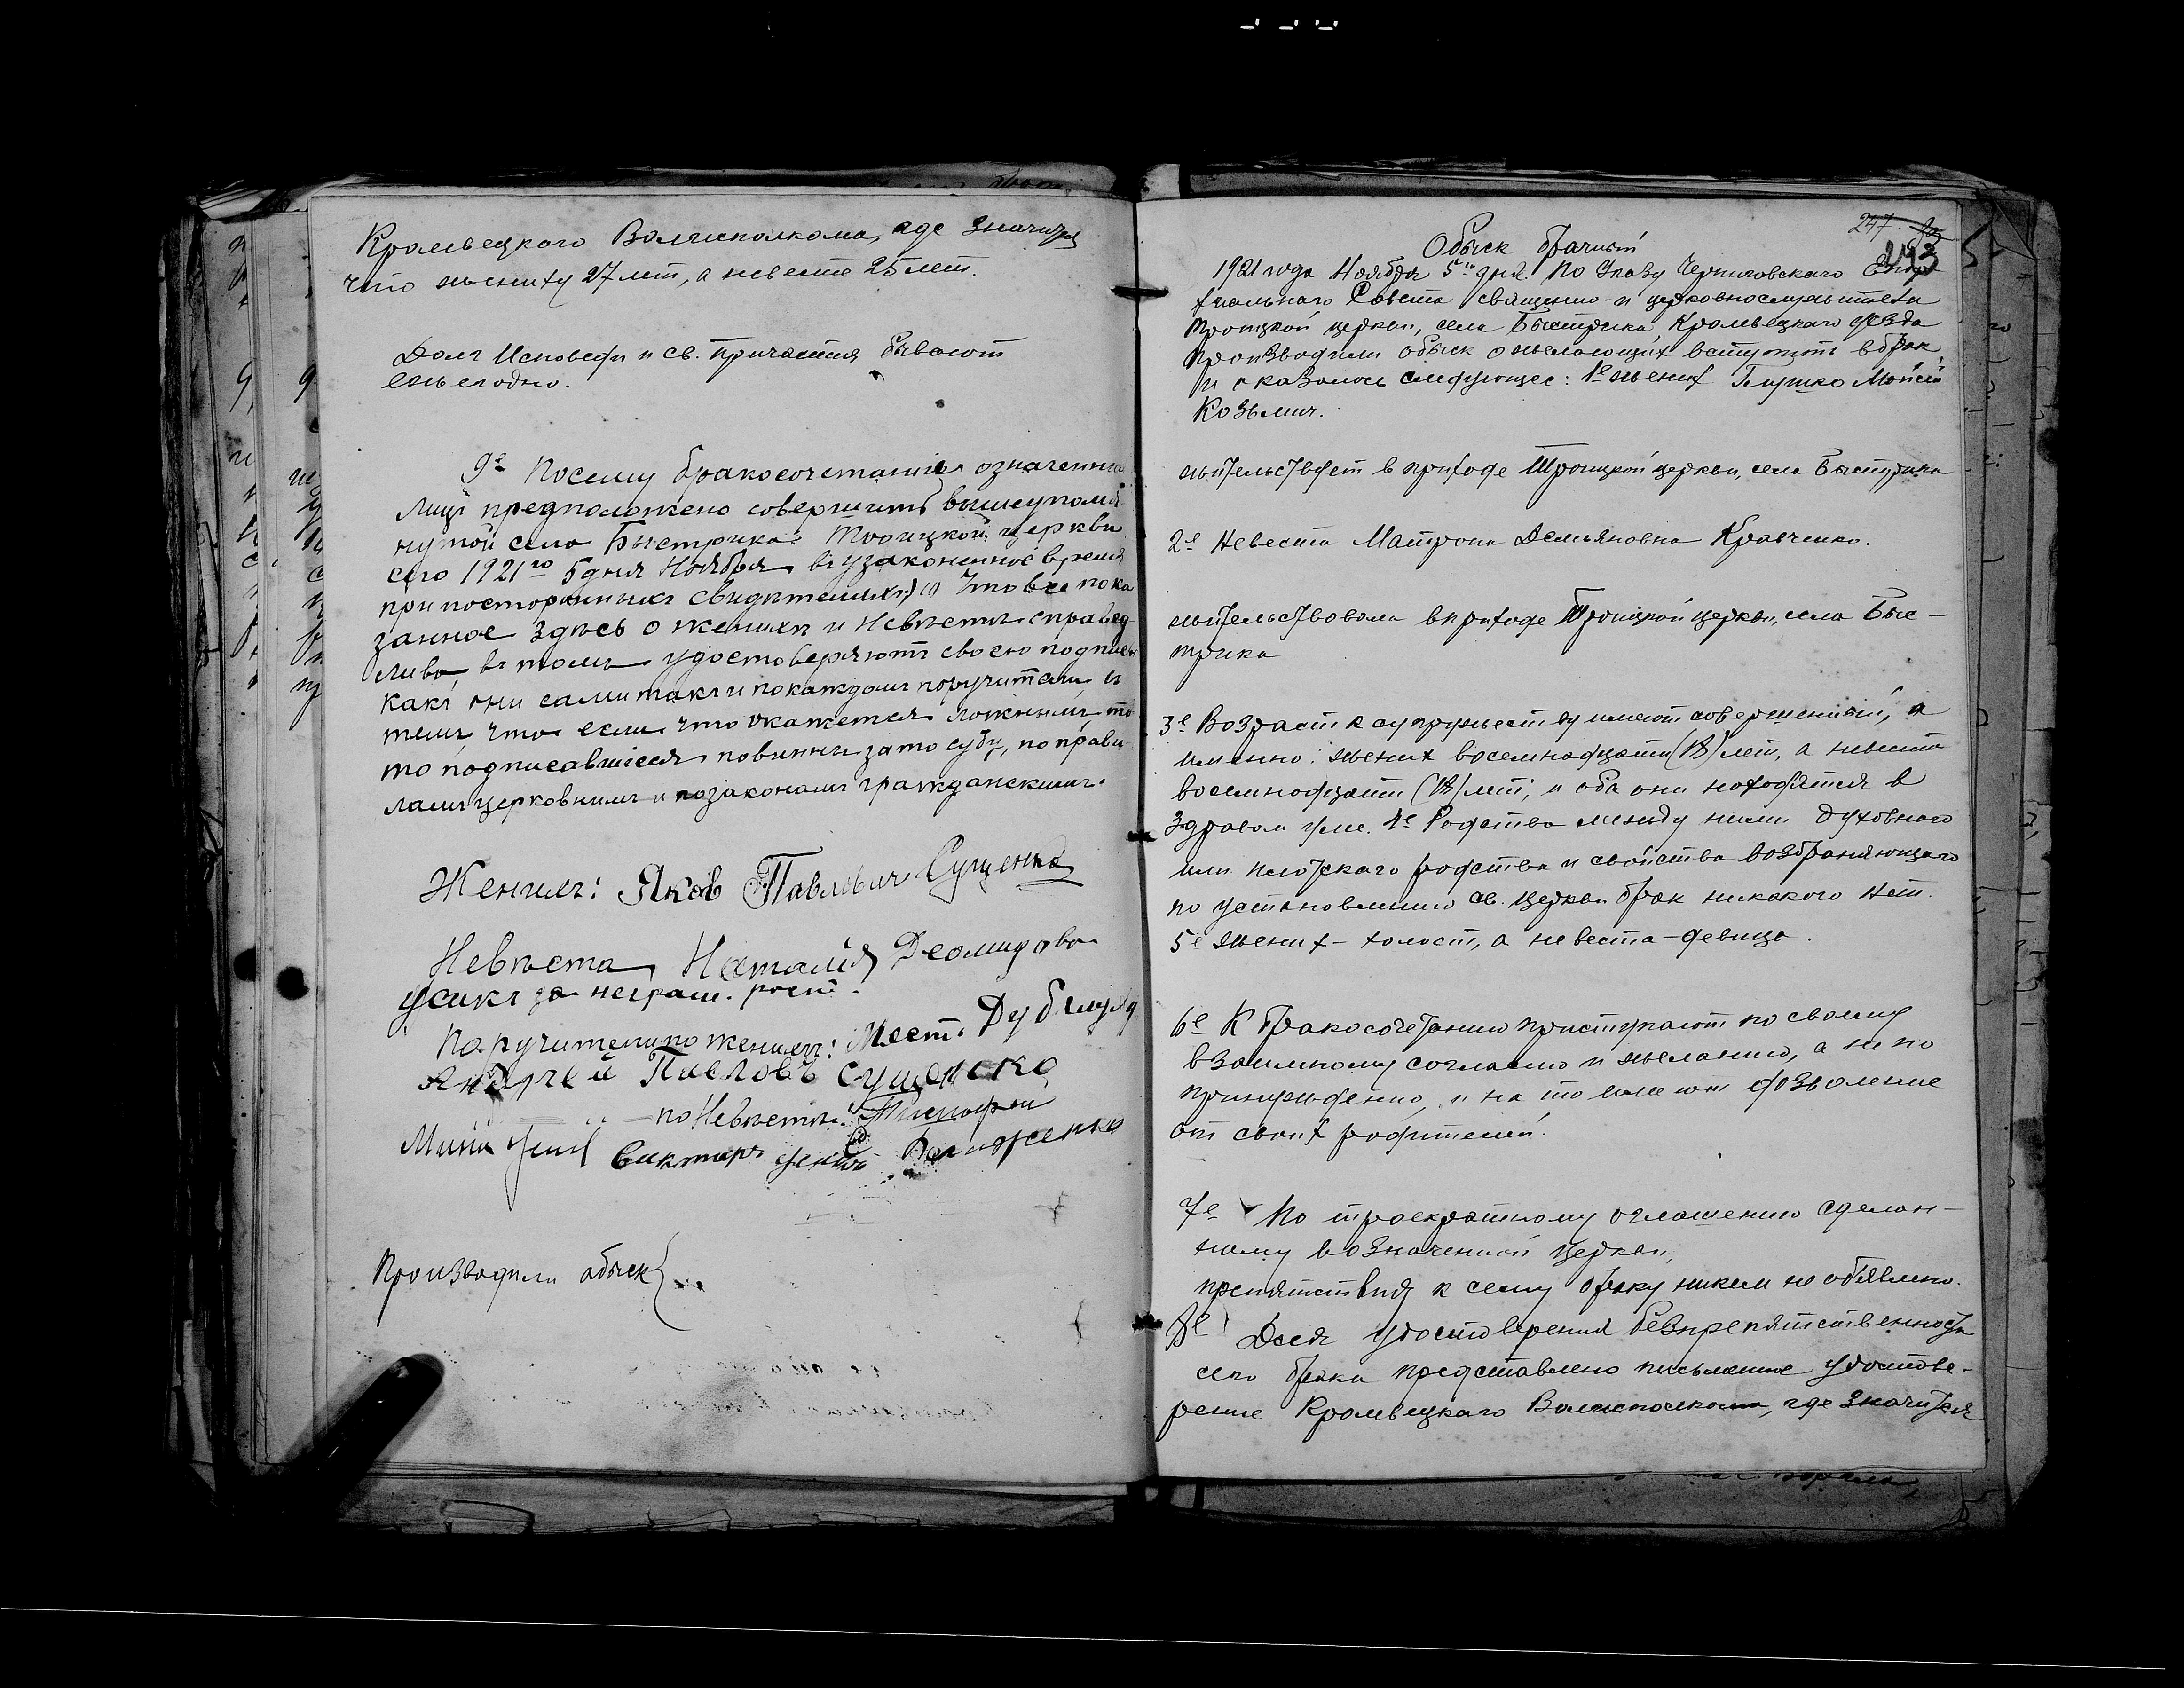 Кролевецкого Волисполкома, где значится
что жениху 27 лет, а невесте 25 лет.
Долг Исповеди и св. Причастия бывают
ежегодно.
9е Посему бракосочетание означенных
лицъ предположено совершить вышеупомя
нутой села Быстрика Троицкой церкви
сего 1921го 5 дня Ноября въ узаконенное время
при постороннихъ свидѣтеляхъ что все пока
занное здѣсь о женихѣ и Невѣстѣ справед
ливо, въ томъ удостоверяютъ своею подписью
какъ они сами такъ и по каждомъ поручители съ
темъ что если что окажется ложнымъ, то
то подписавшіеся повинны за то суду, по прави
ламъ церковнымъ и по законамъ гражданскимъ.
Женихъ: Яков Павлович Сущенко
Невѣста Наталия Деомидова
Усикъ за неграм. росп.
Поручители по женихѣ:
Андрей Павловъ Сущенко
по Невѣстѣ:
Виктор
Производили обыск
247
243
Обыск брачный
1921 года Ноября 5го дня По Указу Черниговского Епар
хиального Совета священно-и церковнослужители
Троицкой церкви, села Быстрика Кролевецкого уезда
производили обыск о желающих вступить в брак,
и оказалось следующее: 1е жених Глушко Моисей
Козьмич.
жительствует в приходе Троицкой церкви, села Быстрика
2е Невеста Матрона Демьяновна Кравченко.
жительствовала в приходе Троицкой церкви, села Быс-
трика
3е Возраст к супружеству имеют совершенный, а
именно: жених восемнадцати (18) лет, а невеста
восемнадцати (18) лет; и оба они находятся в
здравом уме. 4е Родства между ними духовного
или плотского родства и свойства возбраняющего
по установлению св. Церкви брак никакого нет.
5е Жених - холост, а невеста - девица.
6е К бракосочетанию приступают по своему
взаимному согласию и желанию, а не по
принуждению, и на то имеют дозволение
от своих родителей.
7е По троекратному оглашению сделан-
ному в означенной церкви,
препятствия к сему браку никем не объявлено.
8е Для удостоверения безпрепятственности
сего брака представлено письменное удостове-
рение Кролевецкаго Волисполкома, где значится